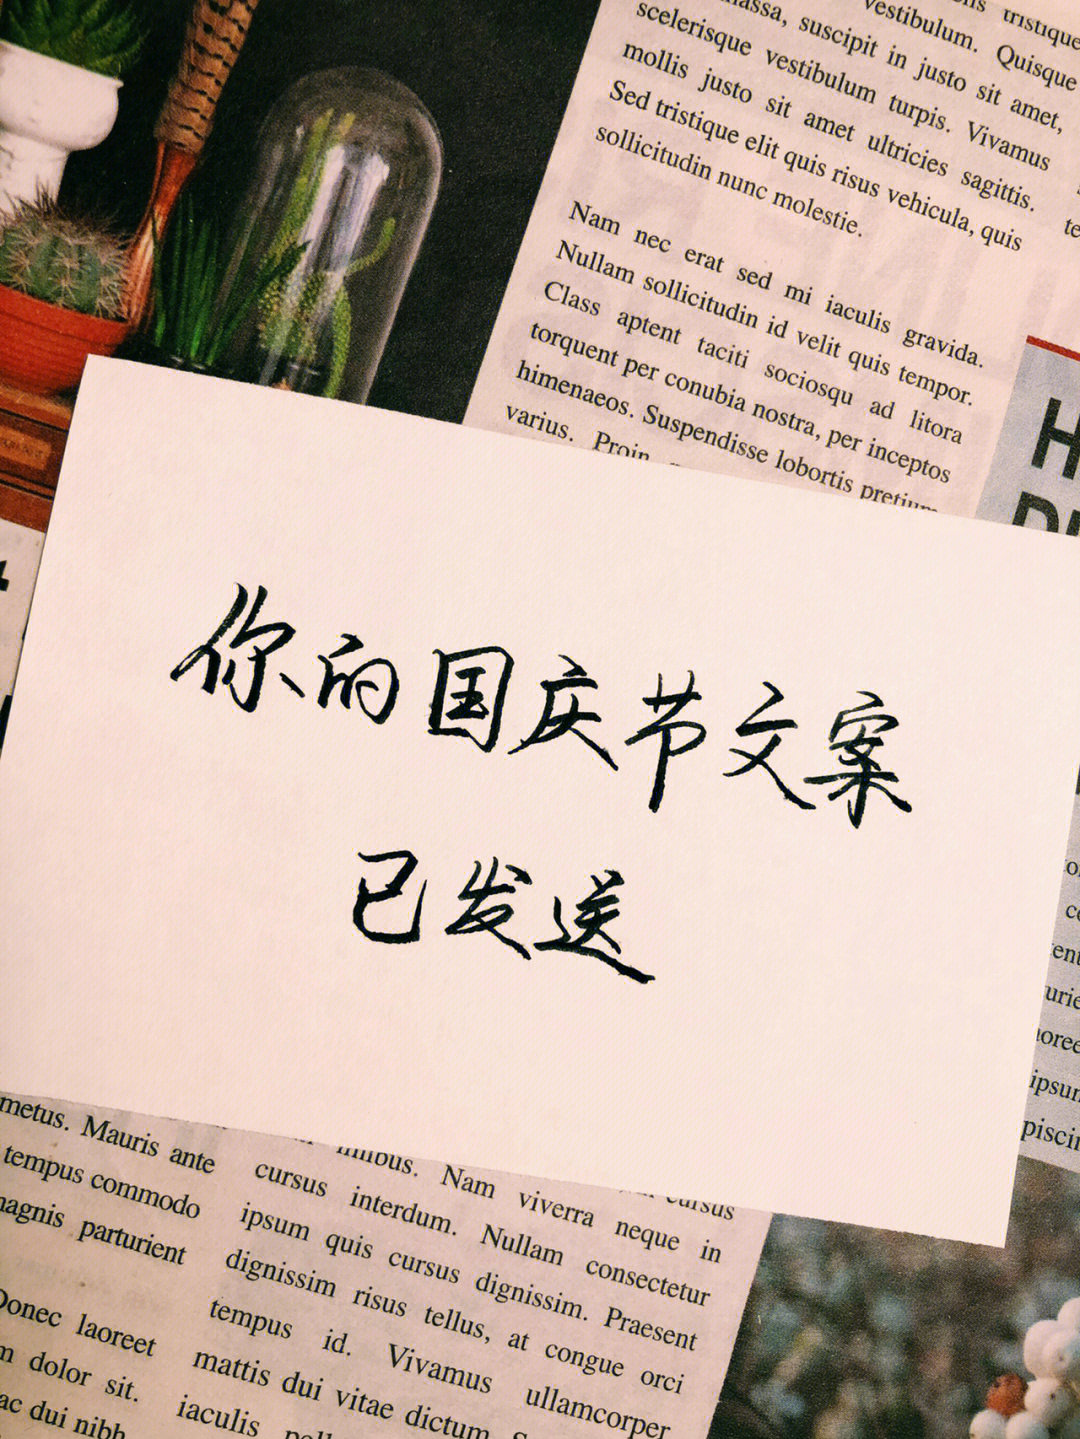 massa, suscipit in justo sit amet,
scelerisque vestibulum turpis. Vivamus
mollis justo sit amet ultricies sagittis.
Sed tristique elit quis risus vehicula, quis
sollicitudin nunc molestie.
tristique
vestibulum. Quisque
Nam nec erat sed mi iaculis gravida.
Nullam sollicitudin id velit quis tempor.
Class aptent taciti sociosqu ad litora
torquent per conubia nostra, per inceptos
himenaeos. Suspendisse lobortis pretium
varius. Proin
你的国庆节文案
已发送
metus. Mauris ante
tempus commodo
magnis parturient
Donec laoreet
dolor sit.
ac dui nibh
cursus
Nam viverra neque in
cursus interdum. Nullam consectetur
ipsum quis cursus dignissim. Praesent
dignissim risus tellus, at congue orci
tempus id. Vivamus ullamcorper
mattis dui vitae dictum
iaculis